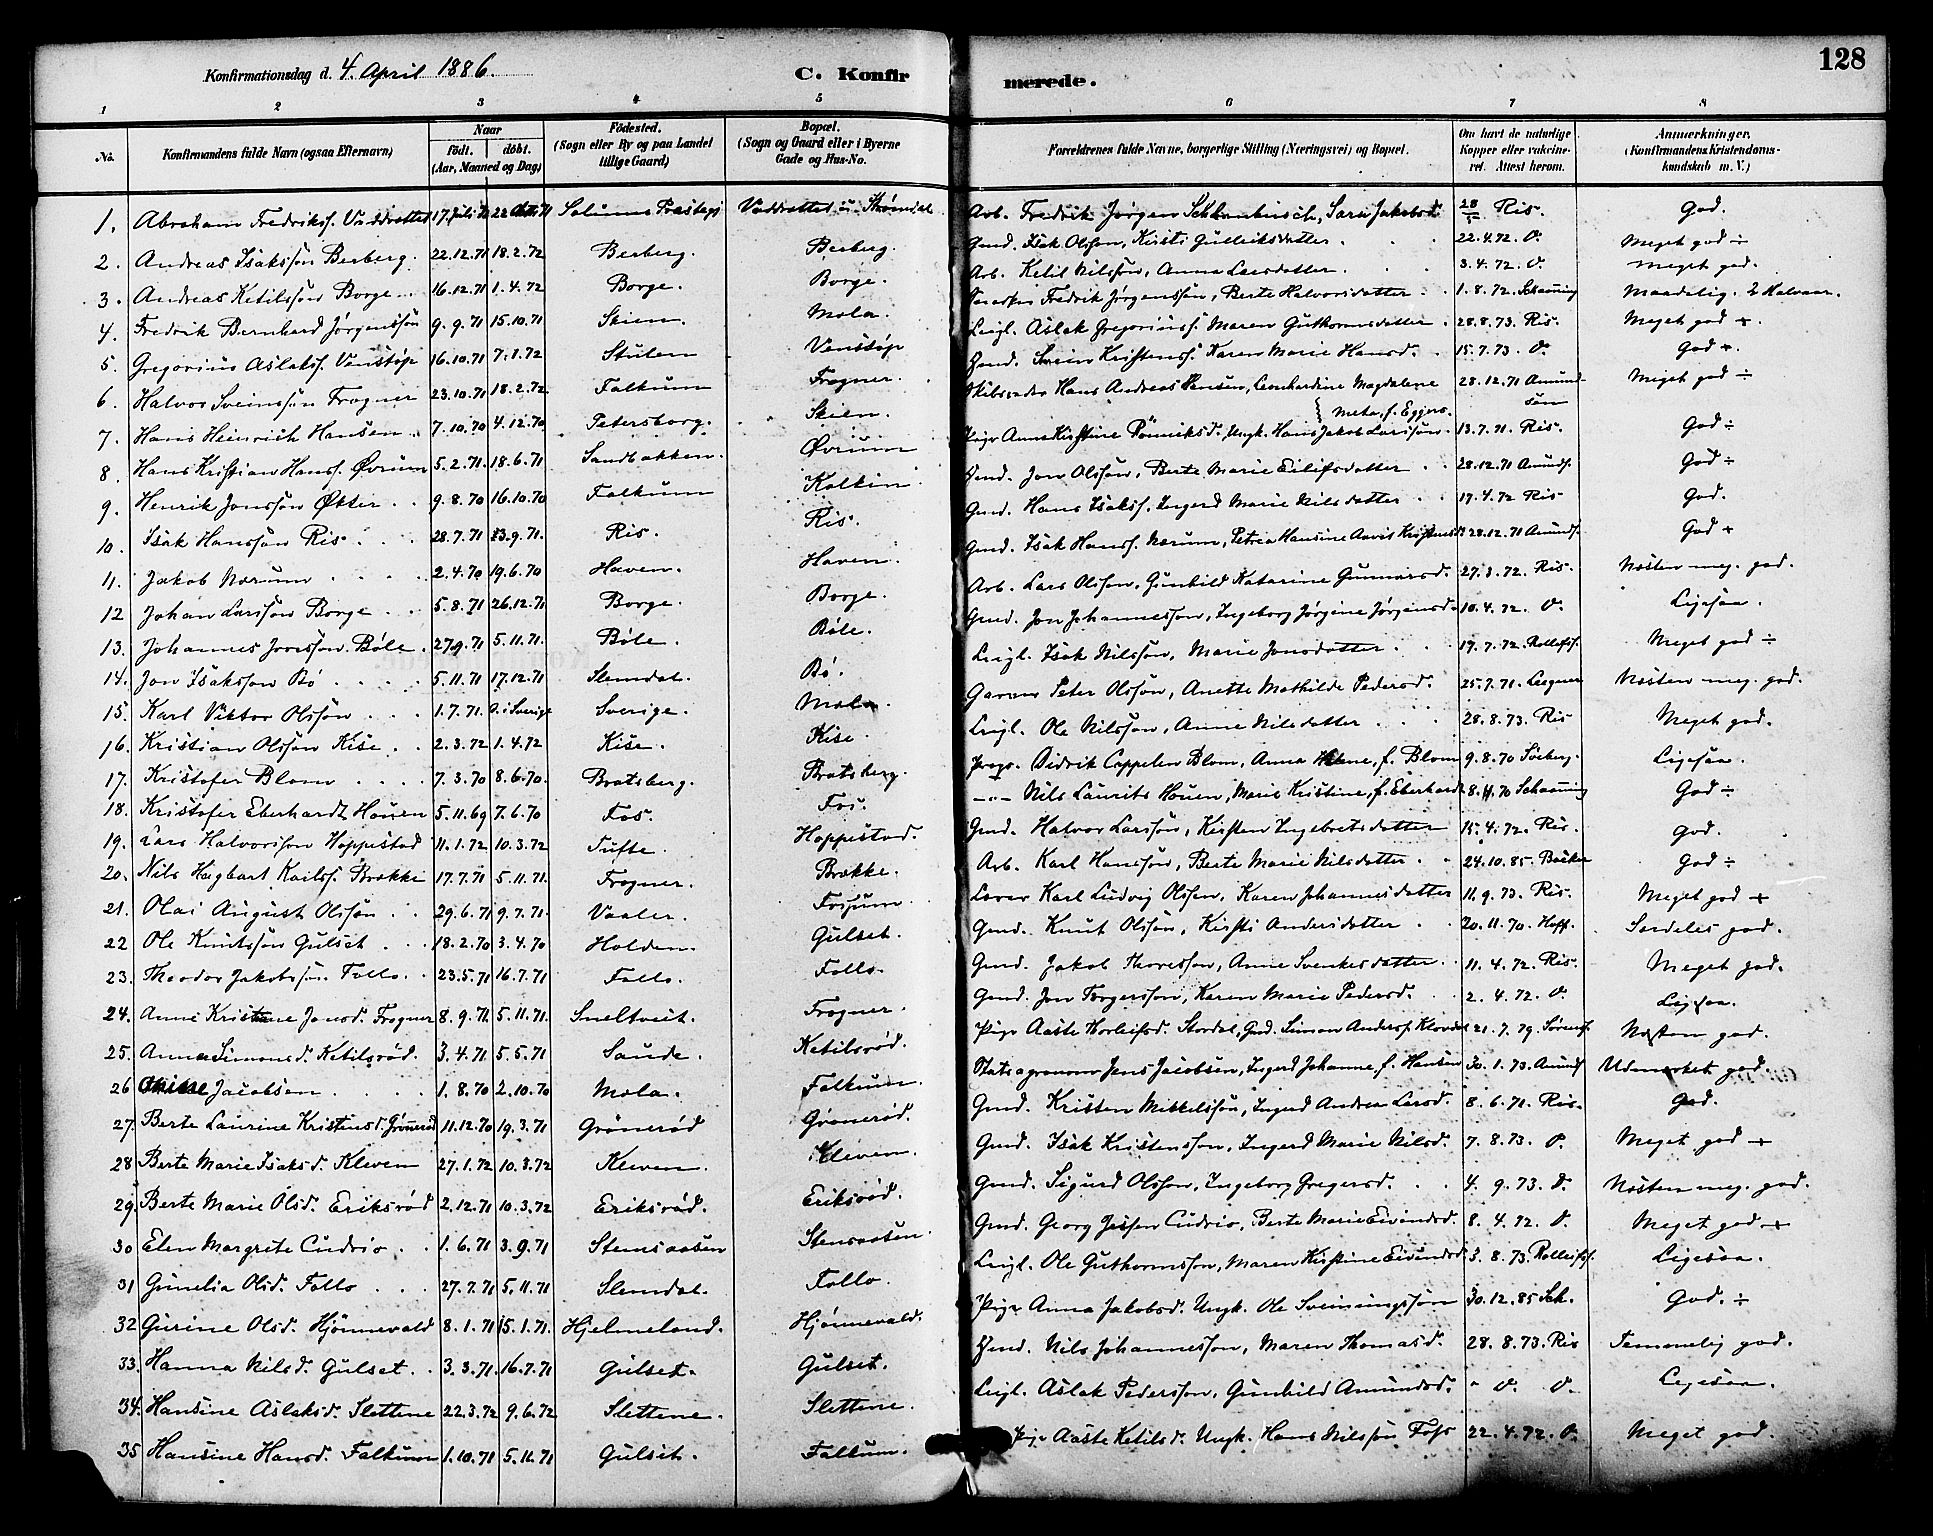 128
Konfirmationsdag d. 4. April 1886. C. Konfirmerede.
1 2 3 4 5 6 7 8
No. Konfirmandens fulde Navn (ogsaa Efternavn) Naar født. døbt. (Aar, Maaned og Dag) Fødested. (Sogn eller By og paa Landet tillige Gaard) Bopæl. (Sogn og Gaard eller i Byerne Gade og Hus-No. Forældrenes fulde Navne, borgerlige Stilling (Næringsvei) og Bopæl. Om havt de naturlige Kopper eller vakcineret. Attest herom. Anmærkninger. (Konfirmandens Kristendomskundskab m. V.)
1. Abraham Fredrikss. Vaddrættet 17 Juli 71 22 Okt. 71 Solums Præstegj Vaddrættet u. Strømdal Arb. Fredrik Jørgen Sara Jakobsd. 28/5 Ris. God.
2. Andreas Isaksson Berberg. 22.12.71 18.2.72 Berberg. Berberg. Gmd. Isak Olsson, Kirsti Gulleiksdatter 22.4.72. O. Meget god ÷
3. Andreas Ketilsson Borge 16.12.71 1.4.72 Borge. Borge. Arb. Ketil Nilsson, Anna Larsdatter. 3.4.72. O. Meget god.
4. Fredrik Bernhard Jørgenssøn 9.9.71 15.10.71 Skien. Mola Fredrik Jørgenssøn, Berte Halvorsdatter 1.8.72. Schanning Maadelig. 2 Halvaar.
5. Gregorius Aslakss. Venstøp 16.10.71 7.1.72 Stulen Venstøp Leigl. Aslak Gregoriuss. Maren Guthormsdatter 28.8.73. Ris. Meget god +.
6. Halvor Sveinssøn Frogner 23.10.71 18.2.72 Falkum Frogner. Gmd. Svein Kristenss. Karen Marie Hansd. 15.7.73. O. God +.
7. Hans Heinrich Hansen 7.10.70 4.12.70 Petersborg. Skien. Hans Andreas Hansen, Leonhardine Magdalene Meta, f. Eggers. 28.12.71 Amundsøn Meget god ÷
8. Hans Kristian Hanss. Øvrum 5.2.71. 18.6.71 Sandbakken. Øvrum Pige Anne Kirstine Pønniksd. Ungk. Hans Jakob Larssøn. 13.7.71. Ris. God ÷
9. Henrik Jonssøn Økter 9.8.70 16.10.70 Falkum Kolkin Gmd. Jon Olssøn, Berte Marie Eilifsdatter 28.12.71 Amunds. God ÷
10. Isak Hanssøn Ris 28.7.71 23.9.71. Ris. Ris. Gmd. Hans Isakss. Ingerd Marie Nilsdatter 17.4.72 Ris God.
11. Jakob Nærum 2.4.70 19.6.70 Haven. Haven. Gmd. Isak Hanss. Nærum, Petrea Hansine Aavis Kristensd. 28.12.71 Amunds. God +
12 Johan Larssøn Borge 5.8.71 26.12.71 Borge. Borge. Arb. Lars Olsson, Gunhild Katarine Gunnarsd. 27.3.72. Ris. Næsten meg. god.
13. Johannes Jonssøn Bøle. 27.9.71 5.11.71. Bøle. Bøle. Gmd. Jon Johannesson, Ingeborg Jørgine Jørgensd. 10.4.72. O. Ligesaa.
14. Jon Isakssøn Bø 5.11.71 17.12.71 Slemdal. Bø. Leigl. Isak Nilsson, Marie Jonsdatter. 19.7.72. Rolleffs. Meget god ÷
15. Karl Viktor Olsson 1.7.71. O. i Sverige Sverige. Mola. Garver Peter Olsson, Anette Mathilde Pedersd. 25.7.71. Legner Næsten meg. god.
16. Kristian Olsson Kise 2.3.72 1.4.72 Kise. Kise. Leigl. Ole Nilsson, Anne Nilsdatter 28.8.73. Ris Meget god.
17. Kristofer Blom 7.3.70 8.6.70. Bratsberg. Bratsberg. Propr. Didrik Cappelen Blom, Anna Helene, f. Blom 9.8.70 Soeberg. Ligesaa.
18. Kristofer Eberhardt Houen 5.11.69 7.6.70 Fos. Fos. —"— Nils Laurits Houen, Marie Kristine, f. Eberhardt 8.11.70 Schanning God ÷
19. Lars Halvorsson Hoppestad 11.1.72 10.3.72 Tufte. Hoppestad. Gmd. Halvor Larssøn, Kirsten Ingebretsdatter 15.4.72. Ris. God.
20. Nils Hagbart Karlss. Brække 17.7.71 5.11.71. Frogner. Brække. Arb. Karl Hansson, Berte Marie Nilsdatter. 24.10.85. Backer God ÷
21. Olai August Olsson 29.6.71 9.7.71. Vaaler. Fossum. Lærer Karl Ludvig Olsson, Karen Johannesdatter 11.9.73. Ris. Meget god +
22 Ole Knutsson Gulset 18.2.70 3.4.70 Holden. Gulset. Gmd. Knut Olsson, Kirsti Andersdatter 20.11.70. Hoff. Særdeles god.
23. Theodor Jakobssøn Follo. 23.5.71 16.7.71 Follo. Follo. Gmd. Jakob Thoresson, Anne Svenkesdatter 11.4.72. Ris. Meget god.
24. Anne Kristine Jonsd. Frogner 8.9.71. 5.11.71. Sneltveit. Frogner. Gmd. Jon Torgersson, Karen Marie Pedersd. 2.4.72. O. Ligesaa.
25. Anna Simonsd. Ketilsrød. 3.4.71 5.5.71 Saude. Ketilsrød. Pige Aaste Torleifsd. Stordal, Gmd. Simon Anderss. Klovdal 21.7.79. Sørens. Næsten god.
26 Jacobsen 1.8.70 2.10.70 Mola. Falkum. Statsagronom Jens Jacobsen, Ingerd Johanne, f. Hansen 30.1.73. Amunds Udmærket god.
27. Berte Laurine Kristensd. Grønerød 11.12.70 19.3.71 Grønerød Grønerød. Gmd. Kristen Mikkelsson, Ingerd Andrea Larsd. 8.6.71. Ris. God.
28 Berte Marie Isaksd. Kleven 27.1.72 10.3.72 Kleven. Kleven. Gmd. Isak Kristensson, Ingerd Marie Nilsd. 7.8.73. O. Meget god +
29. Berte Marie Olsd. Eriksrød 2.12.71 10.3.72 Eriksrød. Eriksrød. Gmd. Sigurd Olsson, Ingeborg Gregersd. 4.9.73. O. Næsten meg. god.
30 Elen Margrete Cudrio 1.6.71 3.9.71 Stensaasen Stensaasen. Gmd. Georg Jessen Cudrio, Berte Marie Eivindsd. 8.4.72. O. Meget god +
31 Gunelia Olsd. Follo 27.7.71 5.11.71 Slemdal. Follo. Leigl. Ole Guthormsson, Maren Kirstine Eivindsd. 3.8.73. Rolleifs. Ligesaa.
32 Gurine Olsd. Hjønnevald 8.1.71 15.1.71. Hjelmeland. Hjønnevald. Pige Anna Jakobsd. Ungk. Ole Sveinungssøn 30.12.85 Sch. God. ÷
33. Hanna Nilsd. Gulset. 3.3.71. 16.7.71 Gulset. Gulset. Gmd. Nils Johannesson, Maren Thomasd. 28.8.73. Ris Temmelig god.
34. Hansine Aslaksd. Slettene 22.3.72 9.6.72 Slettene. Slettene. Leigl. Aslak Pedersson, Gunhild Amundsd. " O. O. Ligesaa.
35 Hansine Hansd. Falkum 1.10.71 5.11.71 Gulset. Falkum. Pige Aaste Ketilsd. Ungk. Hans Nilssøn Foss 22.4.72. O. Meget god.